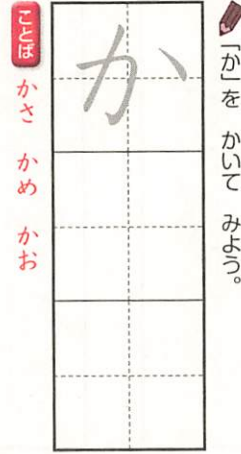 「か」を　かいて　みよう。
か
ことば　かさ　かめ　かお